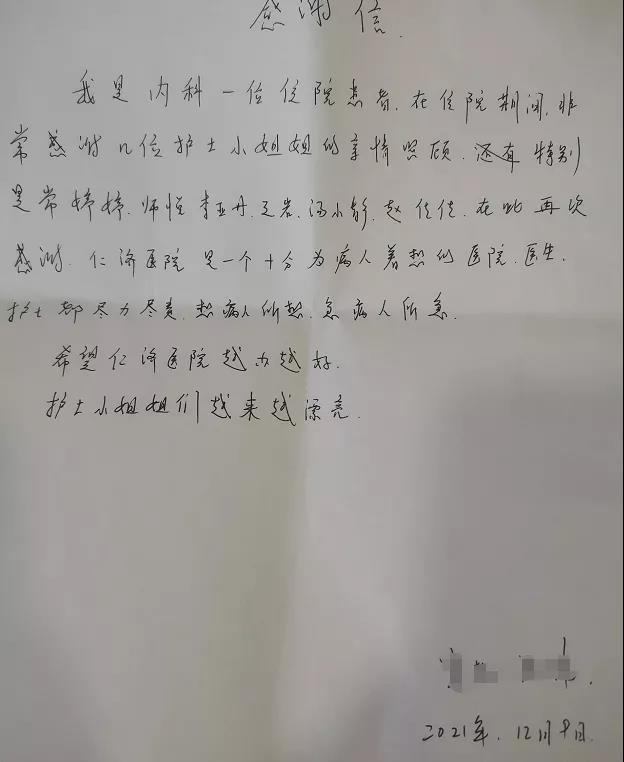 感谢信.
我是内科一位住院患者.在住院期间,非
常感谢几位护士小姐姐的亲情照顾.还有特别
是常婷婷.师恒.李亚丹.王岩.冯小静.赵佳佳.在此再次
感谢.仁济医院是一个十分为病人着想的医院.医生.
护士都尽力尽责.想病人所想.急病人所急.
希望仁济医院越办越好.
护士小姐姐们越来越漂亮.
2021年.12月9日.